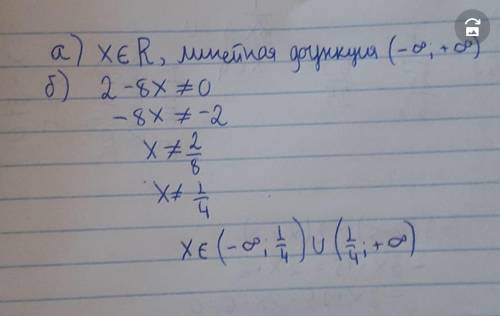 а) X∈R, линейная функция (-∞; +∞)
б) 2-8X≠0
-8X≠-2
X≠2/8
X≠1/4
X∈(-∞; 1/4)∪(1/4; +∞)